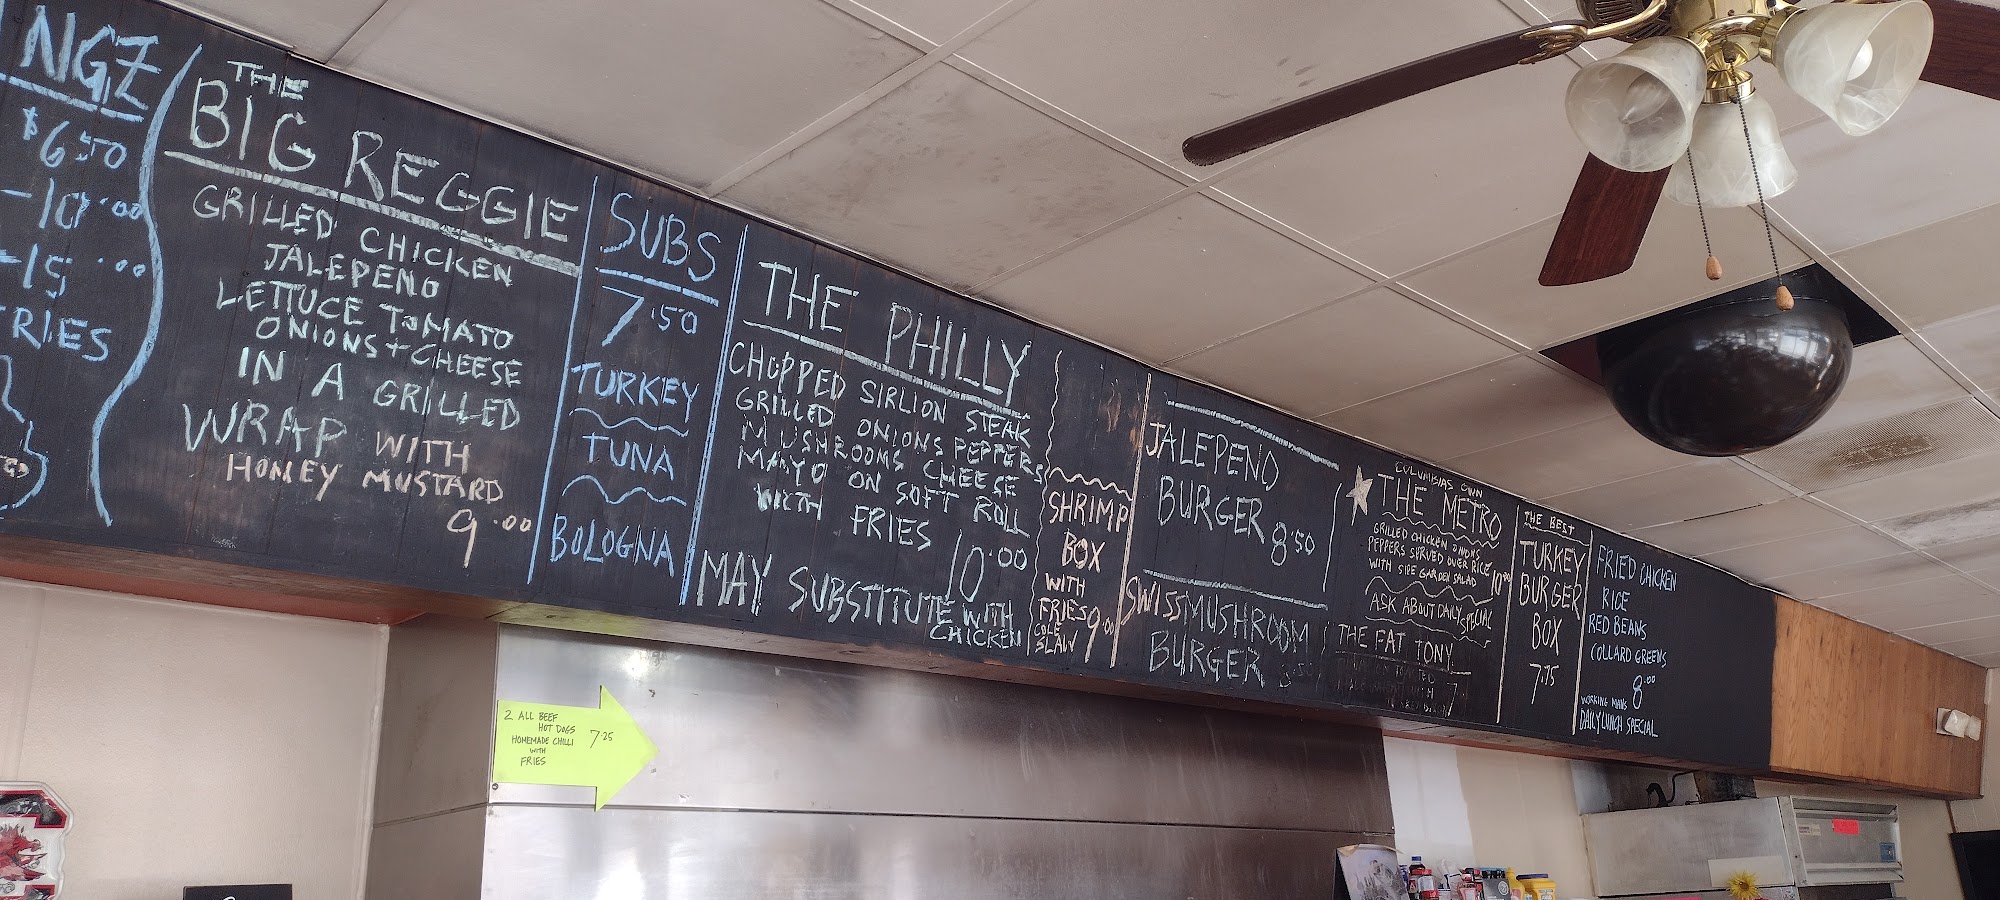 NGZ
$6.50
-10.00
-15.00
FRIES
THE
BIG REGGIE
GRILLED CHICKEN
JALEPENO
LETTUCE TOMATO
ONIONS + CHEESE
IN A GRILLED
WRAP WITH
HONEY MUSTARD
9.00
SUBS
7.50
TURKEY
TUNA
BOLOGNA
THE PHILLY
CHOPPED SIRLION STEAK
GRILLED ONIONS PEPPERS
MUSHROOMS CHEESE
MAYO ON SOFT ROLL
WITH FRIES 10.00
MAY SUBSTITUTE WITH
CHICKEN
SHRIMP
BOX
WITH
FRIES
COLE
SLAW
9.00
JALEPENO
BURGER 8.50
SWISS MUSHROOM
BURGER 8.50
COLUMBIAS OWN
THE METRO
GRILLED CHICKEN ONIONS
PEPPERS SERVED OVER RICE
WITH SIDE GARDEN SALAD 10.00
ASK ABOUT DAILY SPECIAL
THE FAT TONY
THE BEST
TURKEY
BURGER
BOX
7.75
FRIED CHICKEN
RICE
RED BEANS
COLLARD GREENS
8.00
WORKING MANS
DAILY LUNCH SPECIAL
2 ALL BEEF
HOT DOGS
HOMEMADE CHILLI 7.25
WITH
FRIES